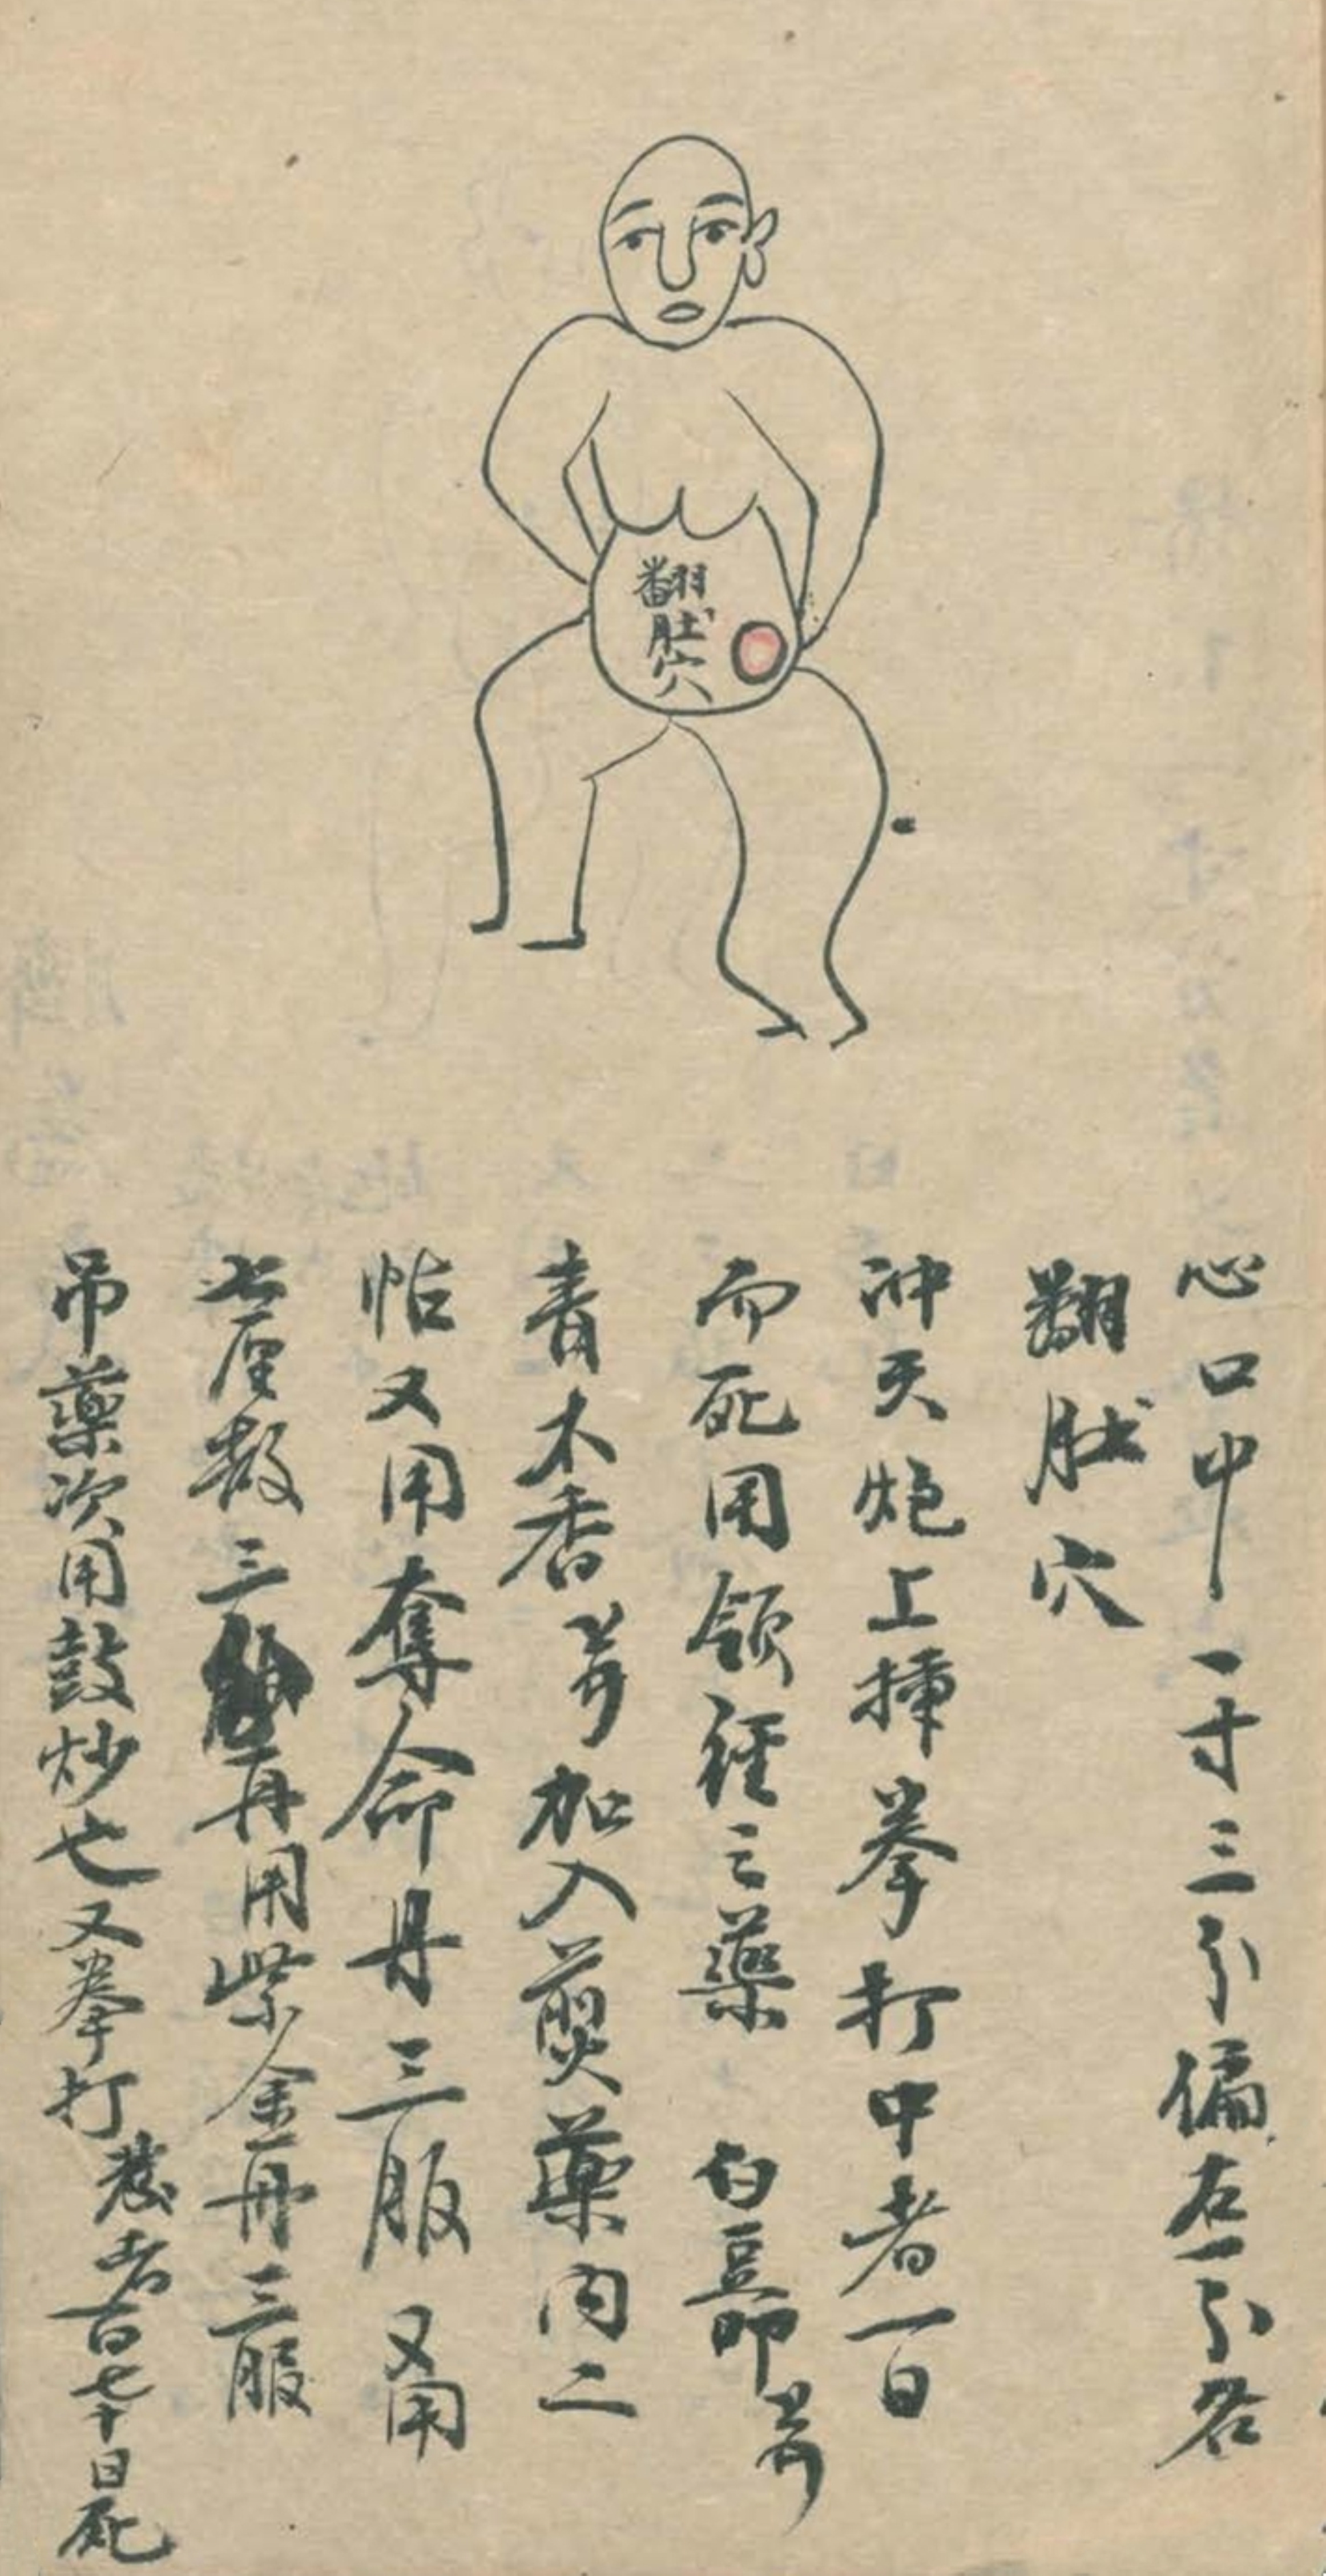 翻肚穴
心口中一寸三分偏左一分名
翻肚穴
冲天炮上捶拳打中者一日
而死用领経之藥 白豆叩
青木香 加入煎藥内二
帖又用奪命丹三服 又用
七厘散三 再用紫金丹三服
吊藥次用鼓炒也又拳打 者百七十日死